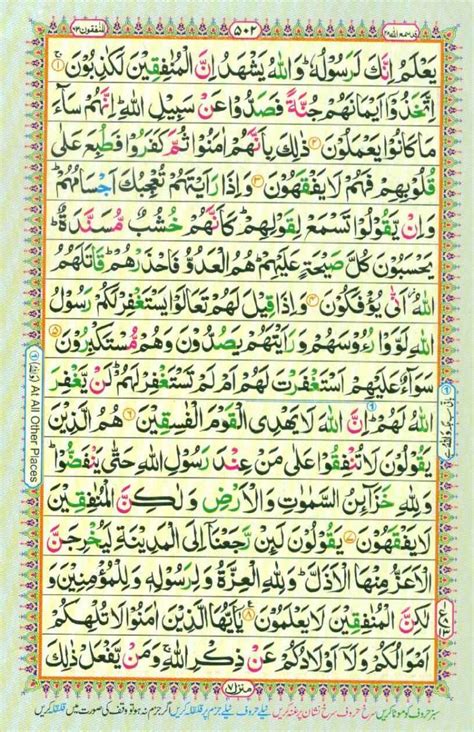 قد سمع الله ٢٨
٥٠٢
المنفقون ٦٣
يَعْلَمُ اِنَّكَ لَرَسُوْلُهٗ ؕ وَاللّٰهُ يَشْهَدُ اِنَّ الْمُنٰفِقِيْنَ لَكٰذِبُوْنَ ۚ ﴿۱﴾
اِتَّخَذُوْۤا اَيْمَانَهُمْ جُنَّةً فَصَدُّوْا عَنْ سَبِيْلِ اللّٰهِ ؕ اِنَّهُمْ سَآءَ
مَا كَانُوْا يَعْمَلُوْنَ ﴿۲﴾ ذٰلِكَ بِاَنَّهُمْ اٰمَنُوْا ثُمَّ كَفَرُوْا فَطُبِعَ عَلٰى
قُلُوْبِهِمْ فَهُمْ لَا يَفْقَهُوْنَ ﴿۳﴾ وَاِذَا رَاَيْتَهُمْ تُعْجِبُكَ اَجْسَامُهُمْ ؕ
وَاِنْ يَّقُوْلُوْا تَسْمَعْ لِقَوْلِهِمْ ؕ كَاَنَّهُمْ خُشُبٌ مُّسَنَّدَةٌ ؕ
يَحْسَبُوْنَ كُلَّ صَيْحَةٍ عَلَيْهِمْ ؕ هُمُ الْعَدُوُّ فَاحْذَرْهُمْ ؕ قَاتَلَهُمُ
اللّٰهُ ؗ اَنّٰى يُؤْفَكُوْنَ ﴿۴﴾ وَاِذَا قِيْلَ لَهُمْ تَعَالَوْا يَسْتَغْفِرْ لَكُمْ رَسُوْلُ
اللّٰهِ لَوَّوْا رُءُوْسَهُمْ وَرَاَيْتَهُمْ يَصُدُّوْنَ وَهُمْ مُّسْتَكْبِرُوْنَ ﴿۵﴾
سَوَآءٌ عَلَيْهِمْ اَسْتَغْفَرْتَ لَهُمْ اَمْ لَمْ تَسْتَغْفِرْ لَهُمْ ؕ لَنْ يَّغْفِرَ
اللّٰهُ لَهُمْ ؕ اِنَّ اللّٰهَ لَا يَهْدِى الْقَوْمَ الْفٰسِقِيْنَ ﴿۶﴾ هُمُ الَّذِيْنَ
يَقُوْلُوْنَ لَا تُنْفِقُوْا عَلٰى مَنْ عِنْدَ رَسُوْلِ اللّٰهِ حَتّٰى يَنْفَضُّوْا ؕ
وَلِلّٰهِ خَزَآئِنُ السَّمٰوٰتِ وَالْاَرْضِ وَلٰكِنَّ الْمُنٰفِقِيْنَ
لَا يَفْقَهُوْنَ ﴿۷﴾ يَقُوْلُوْنَ لَئِنْ رَّجَعْنَاۤ اِلَى الْمَدِيْنَةِ لَيُخْرِجَنَّ
الْاَعَزُّ مِنْهَا الْاَذَلَّ ؕ وَلِلّٰهِ الْعِزَّةُ وَلِرَسُوْلِهٖ وَلِلْمُؤْمِنِيْنَ وَ
لٰكِنَّ الْمُنٰفِقِيْنَ لَا يَعْلَمُوْنَ ﴿۸﴾ يٰۤاَيُّهَا الَّذِيْنَ اٰمَنُوْا لَا تُلْهِكُمْ
اَمْوَالُكُمْ وَلَاۤ اَوْلَادُكُمْ عَنْ ذِكْرِ اللّٰهِ ۚ وَمَنْ يَّفْعَلْ ذٰلِكَ
At All Other Places
منزل ۷
سبز حروف کو موٹا کریں سرخ حروف سرخ نشان پر غنہ کریں نیلے حروف نیلے جزم پر قلقلہ کریں اگر جزم نہ ہو تو وقف کی صورت میں قلقلہ کریں